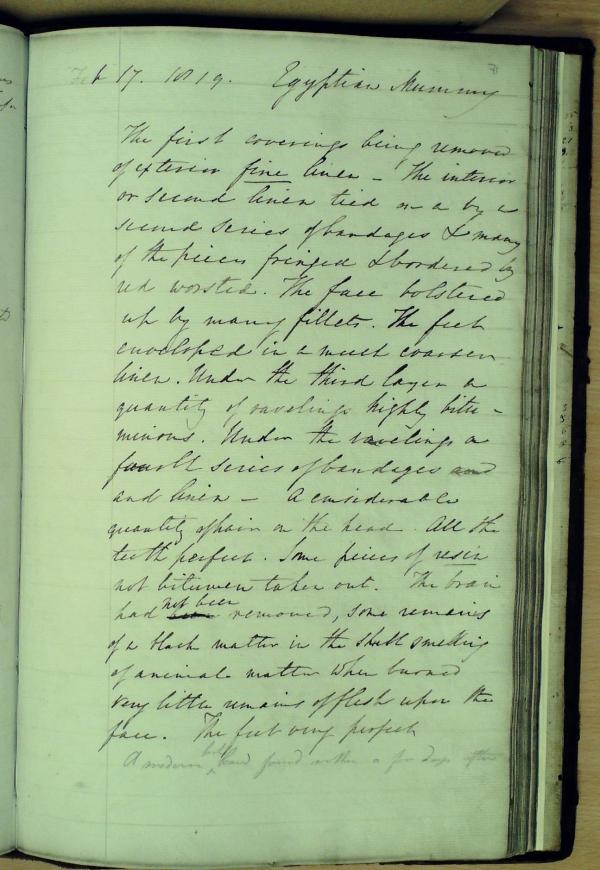 Feb 17. 1819. Egyptian Mummy
The first coverings being removed
of exterior fine linen – The interior
or second linen tied on a by a
second series of bandages & many
of the pieces fringed & bordered by
red worsted. The face bolstered
up by many fillets. The feet
enveloped in a much coarser
linen. Under the third layer a
quantity of ravelings highly bitu-
minous. Under the ravelings a
fourth series of bandages and
and linen – A considerable
quantity of hair on the head. All the
teeth perfect. Some pieces of resin
not bitumen taken out. The brain
had not been removed, some remains
of a black matter in the skull smelling
of animal matter when burned
very little remains of flesh upon the
face. The feet very perfect
A modern found within a few days after